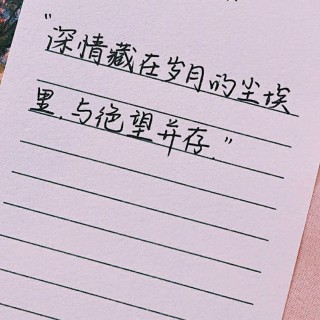 "深情藏在岁月的尘埃
里,与绝望并存."